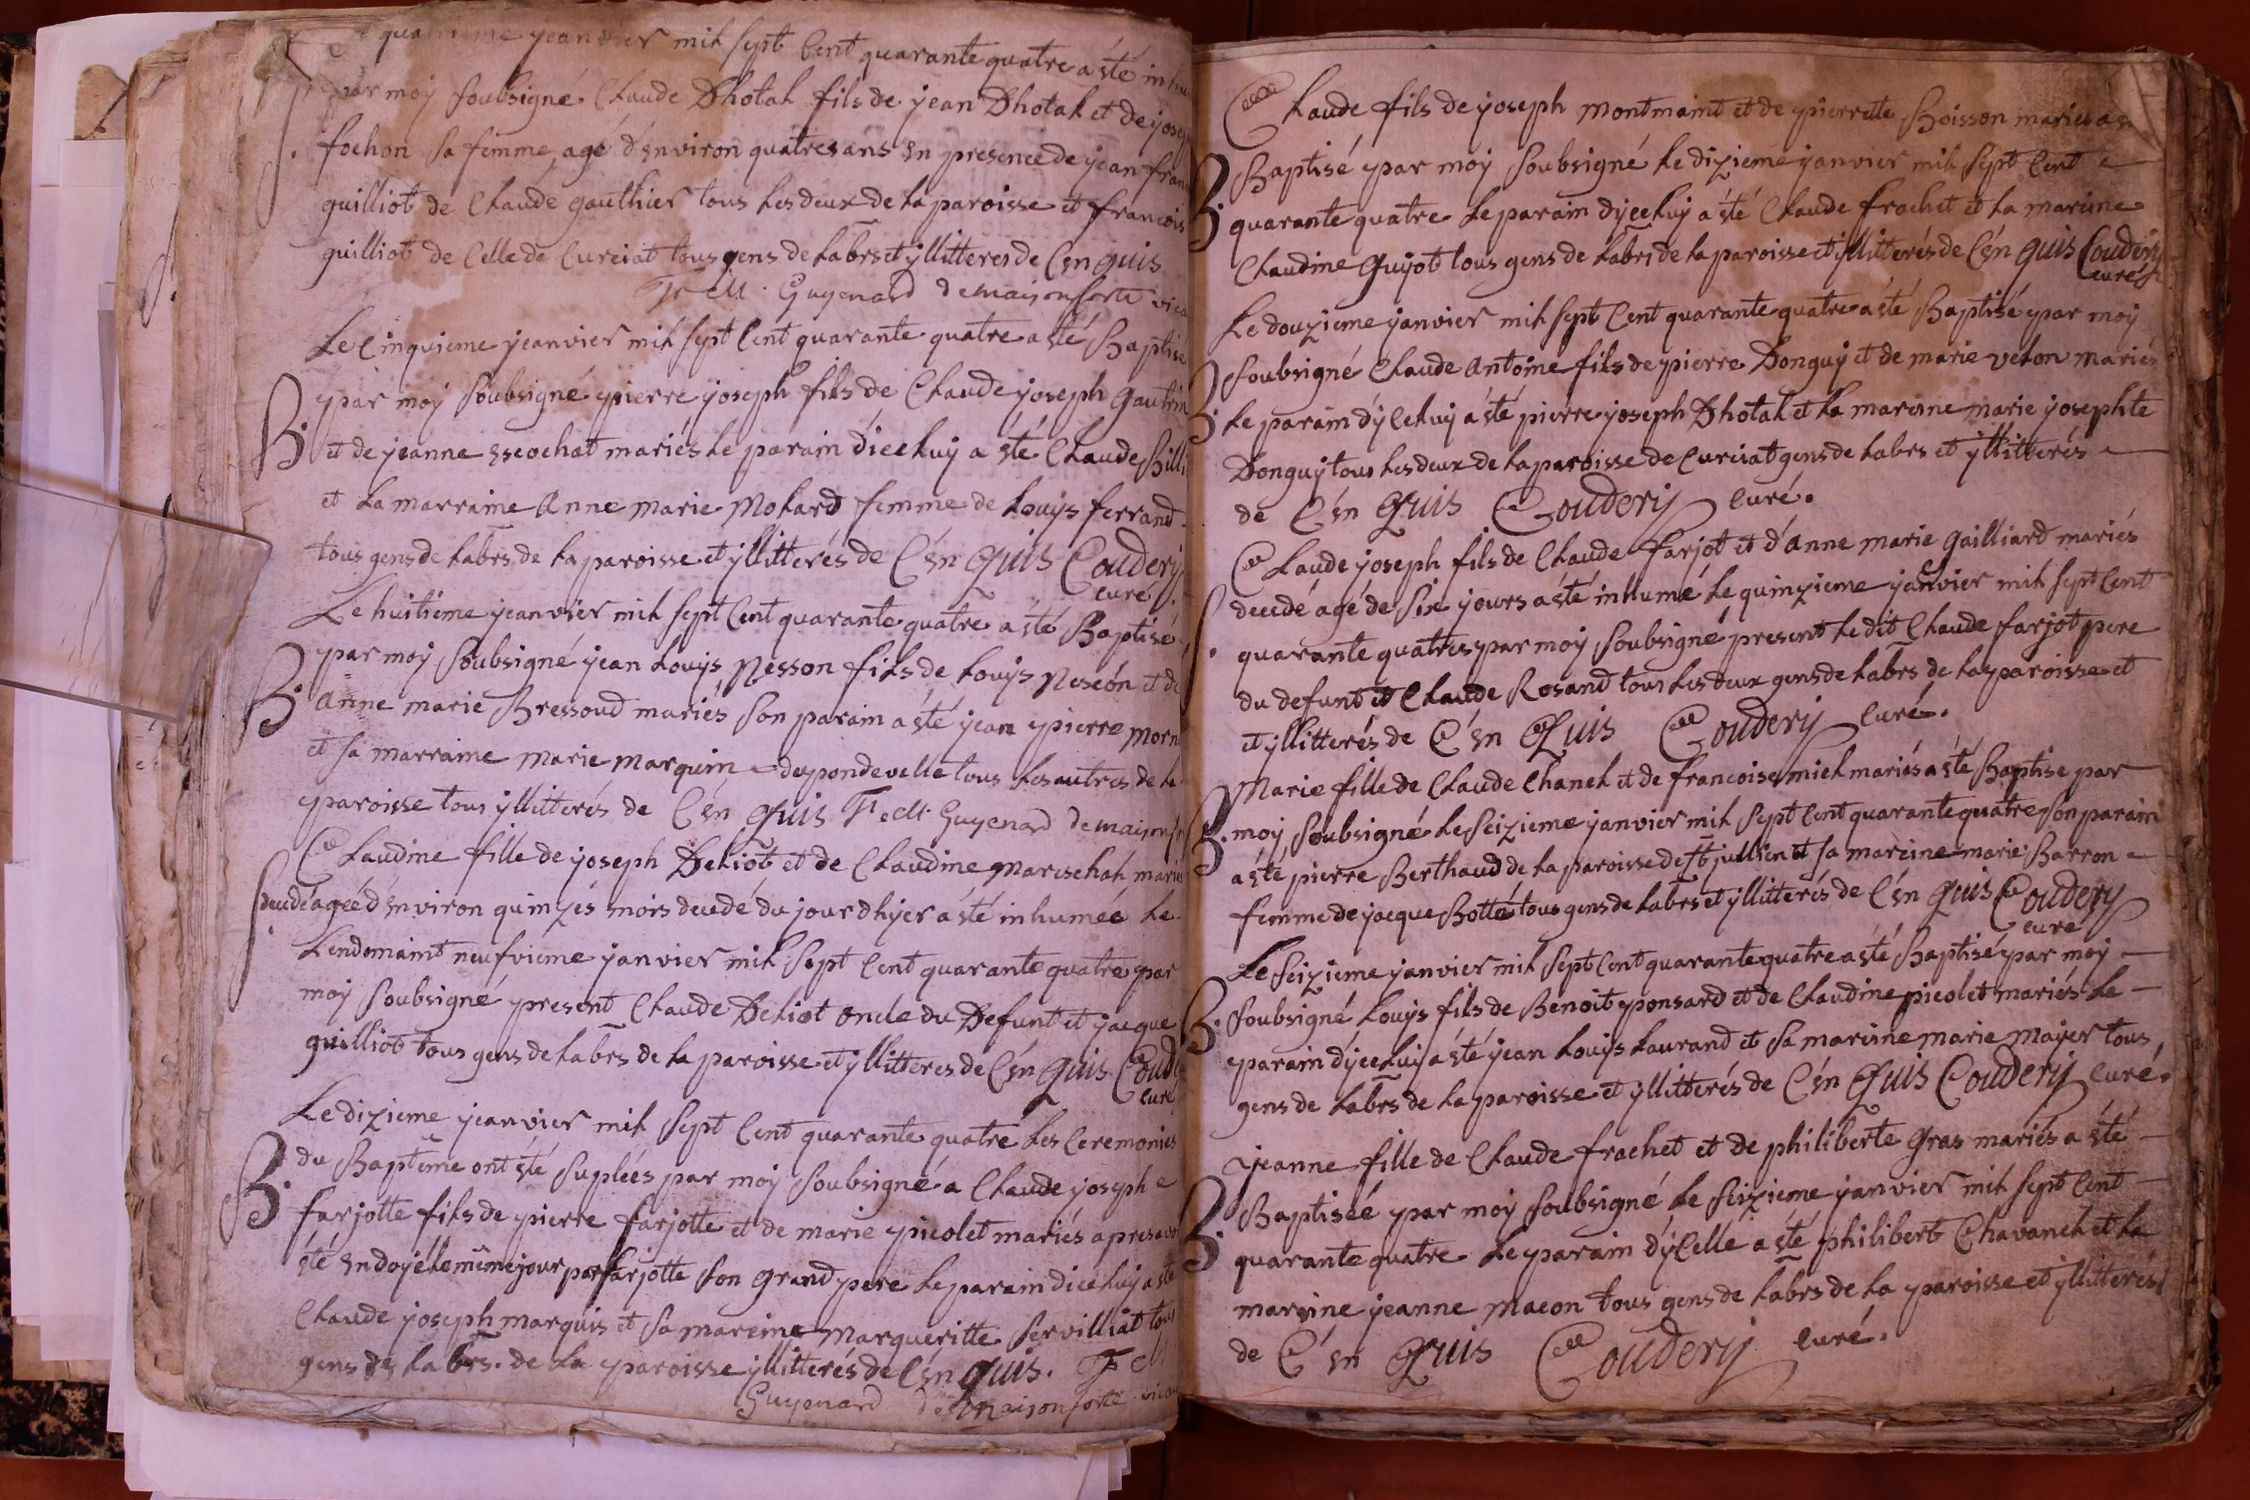 quatrieme jeanvier mil sept Cent quarante quatre a été
par moÿ soubsigné Claude Dhotal fils de jean Dhotal et de
fochon sa femme agé d'environ quatres ans en presence de jean
guilliot de Claude gauthier tous les deux de la paroisse et francois
guilliot de Celle de Curciat tous gens de labrs et yllitteres de C én quis
F M Guyenard demaisonforte
Le Cinquieme jeanvier mil sept Cent quarante quatre a eté Baptisé
B. par moÿ soubsigné pierre joseph fils de Claude joseph
et de jeanne escochat mariés le parain d'icelluy a eté Claude
et la marraine Anne marie Molard femme de Louÿs ferrand
tous gens de labrs de la paroisse et yllitterés de C én quis Coudery
curé
Le huitieme jeanvier mil sept Cent quarante quatre a eté Baptisé
B. par moÿ soubsigné jean Louÿs Nesson fils de Louÿs Neseon et de
Anne marie Bressoud mariés son parain a eté jean pierre
et sa marraine marie marquin depondevelle tous les autres de la
paroisse tous yllitterés de C én quis F M Guyenard
Claudine fille de joseph Deliot et de Claudine mareschal
S. decedé agéé d'environ quinzes mois decedé du jourdhyer a eté inhumée le
Lendemaint neufvieme janvier mil sept Cent quarante quatre par
moÿ soubsigné present Claude Deliot oncle du Defunt et jacque
guilliot tous gens de labrs de la paroisse et yllitteres de C én quis
curé
Le dizieme jeanvier mil sept Cent quarante quatre les Ceremonies
B. du Baptême ont eté suplées par moÿ soubsigné a Claude joseph
farjotte fils de pierre farjotte et de marie picolet mariés apres
été endoyé le même jour par farjotte son grand pere le parain dicelluy a eté
Claude joseph marquis et sa mareine Margueritte servilliat tous
gens de labrs. de la paroisse yllitterés de C én quis. F M
Guyenard demaisonforte
Claude fils de joseph montmaint et de pierrette Boisson mariés
B. Baptisé par moÿ soubsigné le dizieme janvier mil sept Cent
quarante quatre le parain dÿcelluy a été Claude frachet et la mareine
Claudine Guyot tous gens de labrs de la paroisse et yllitterés de C én quis Coudery
curé
Le douzieme janvier mil sept Cent quarante quatre a été Baptisé par moÿ
B. soubsigné Claude Antoine fils de pierre Donguy et de marie velon mariés
le parain d'ÿcelluy a été pierre joseph Dhotal et la mareine marie josephte
Donguÿ tous les deux de la paroisse de Curciat gens de labrs et yllitterés
de C én quis Coudery curé.
Claude joseph fils de Claude farjot et d'Anne marie gailliard mariés
S. decedé agé de six jours a été inhumé le quinzieme janvier mil sept Cent
quarante quatre par moÿ soubsigné present ledit Claude farjot pere
du defunt et Claude Rosand tous les deux gens de labrs de la paroisse et
et yllitterés de C én quis Coudery curé.
Marie fille de Claude Chanel et de francoise miel mariés a été Baptise par
B. moÿ soubsigné le seizieme janvier mil sept Cent quarante quatre son parain
a eté pierre Berthaud de la paroisse de st jullien et sa mareine marie Barron
femme de jacque Botte tous gens de labrs et yllitterés de C én quis Coudery
curé
Le seizieme janvier mil sept Cent quarante quatre a été Baptisé par moÿ
B. soubsigné Louÿs fils de Benoit ponsard et de Claudine picolet mariés le
parain d'ÿcelluy a été jean Louÿs Laurand et sa mareine marie majer tous
gens de labrs de la paroisse et yllitterés de C én quis Coudery curé.
jeanne fille de Claude frachet et de philiberte Gras mariés a été
B. Baptiséé par moÿ soubsigné le seizieme janvier mil sept Cent
quarante quatre le parain d'ÿCelle a été philibert Chavanel et la
mareine jeanne macon tous gens de labrs de la paroisse et yllitterés
de C én quis Coudery curé.